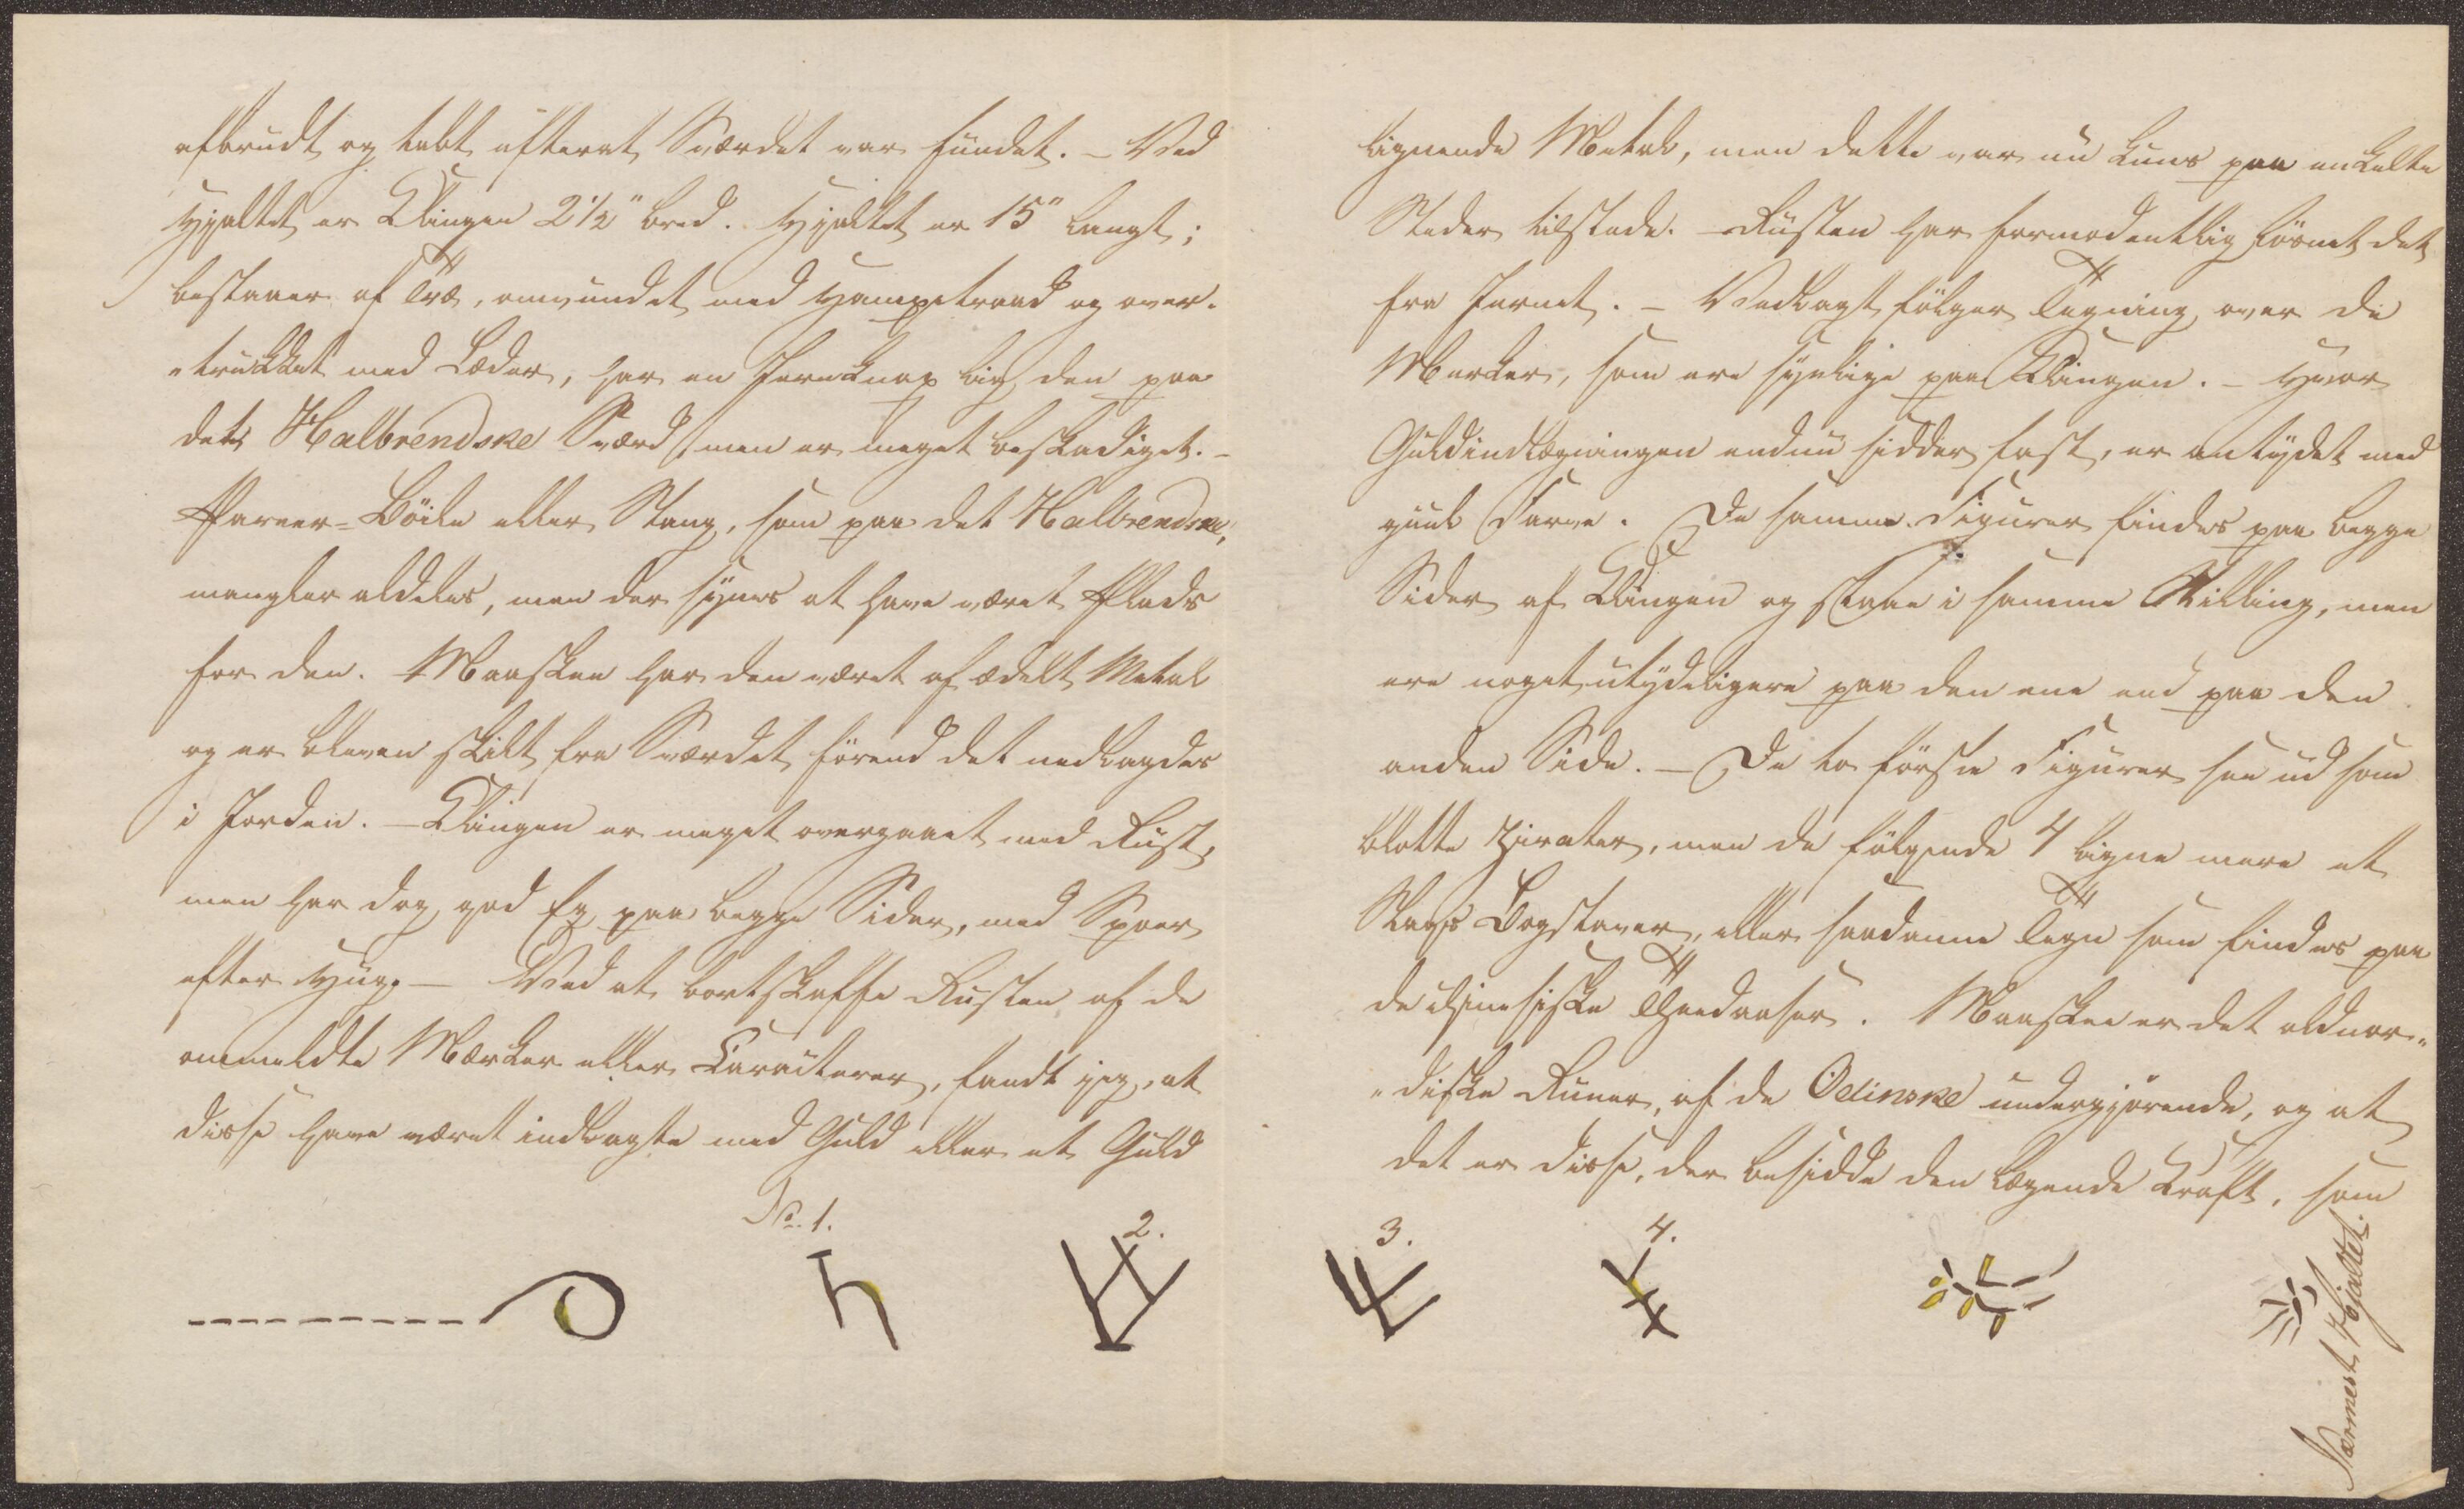 afbrudt og tabt efterat Sværdet var fundet. – Ved
Hjaltet er Klingen 2½" bred. Hjaltet er 15" langt;
bestaaer af Træ, omvundet med Hampetraad og over-
„trukket med Læder, har en Jernknap lig den paa
det Halbrendske Sværd, men er meget beskadiget. –
Pareer-Böile eller Stang, som paa det Halbrendske,
mangler aldeles, men der synes at have været Plads
for den. Maaskee har den været af ædelt Metal
og er bleven skilt fra Sværdet förend det nedlagdes
i Jorden. – Klingen er meget overgaaet med Rust,
men har dog god Eg paa begge Sider, med Spoer
efter Hug. – Ved at bortskaffe Rusten af de
ommeldte Mærker eller Caracterer, fandt jeg, at
disse have været indlagte med Guld eller et Guld
No. 1.
2.
lignende Metal, men dette var nu kuns paa enkelte
Steder tilstede. – Rusten har formodentlig fiörnet det
fra Jernet. – Vedlagt fölger Tegning over de
Mærker, som ere synlige paa Klingen. – Hvor
Guldindlægningen endnu sidder fast, er antydet med
guul Farve. De samme Figurer findes paa begge
Sider af Klingen og staae i samme Stilling, men
ere noget utydeligere paa den ene end paa den
anden Side. – De to förste Figurer see ud som
blotte Zirater, men de fölgende 4 ligne mere et
Slags Bogstaver, eller saadanne Tegn som findes paa
de chinesiske Theedaaser. Maaskee er det oldnor-
„diske Runer, af de Odinske undergjörende, og at
det er disse, der besidde den lægende Kraft, som
3.
4.
Nærmest Hjaltet.